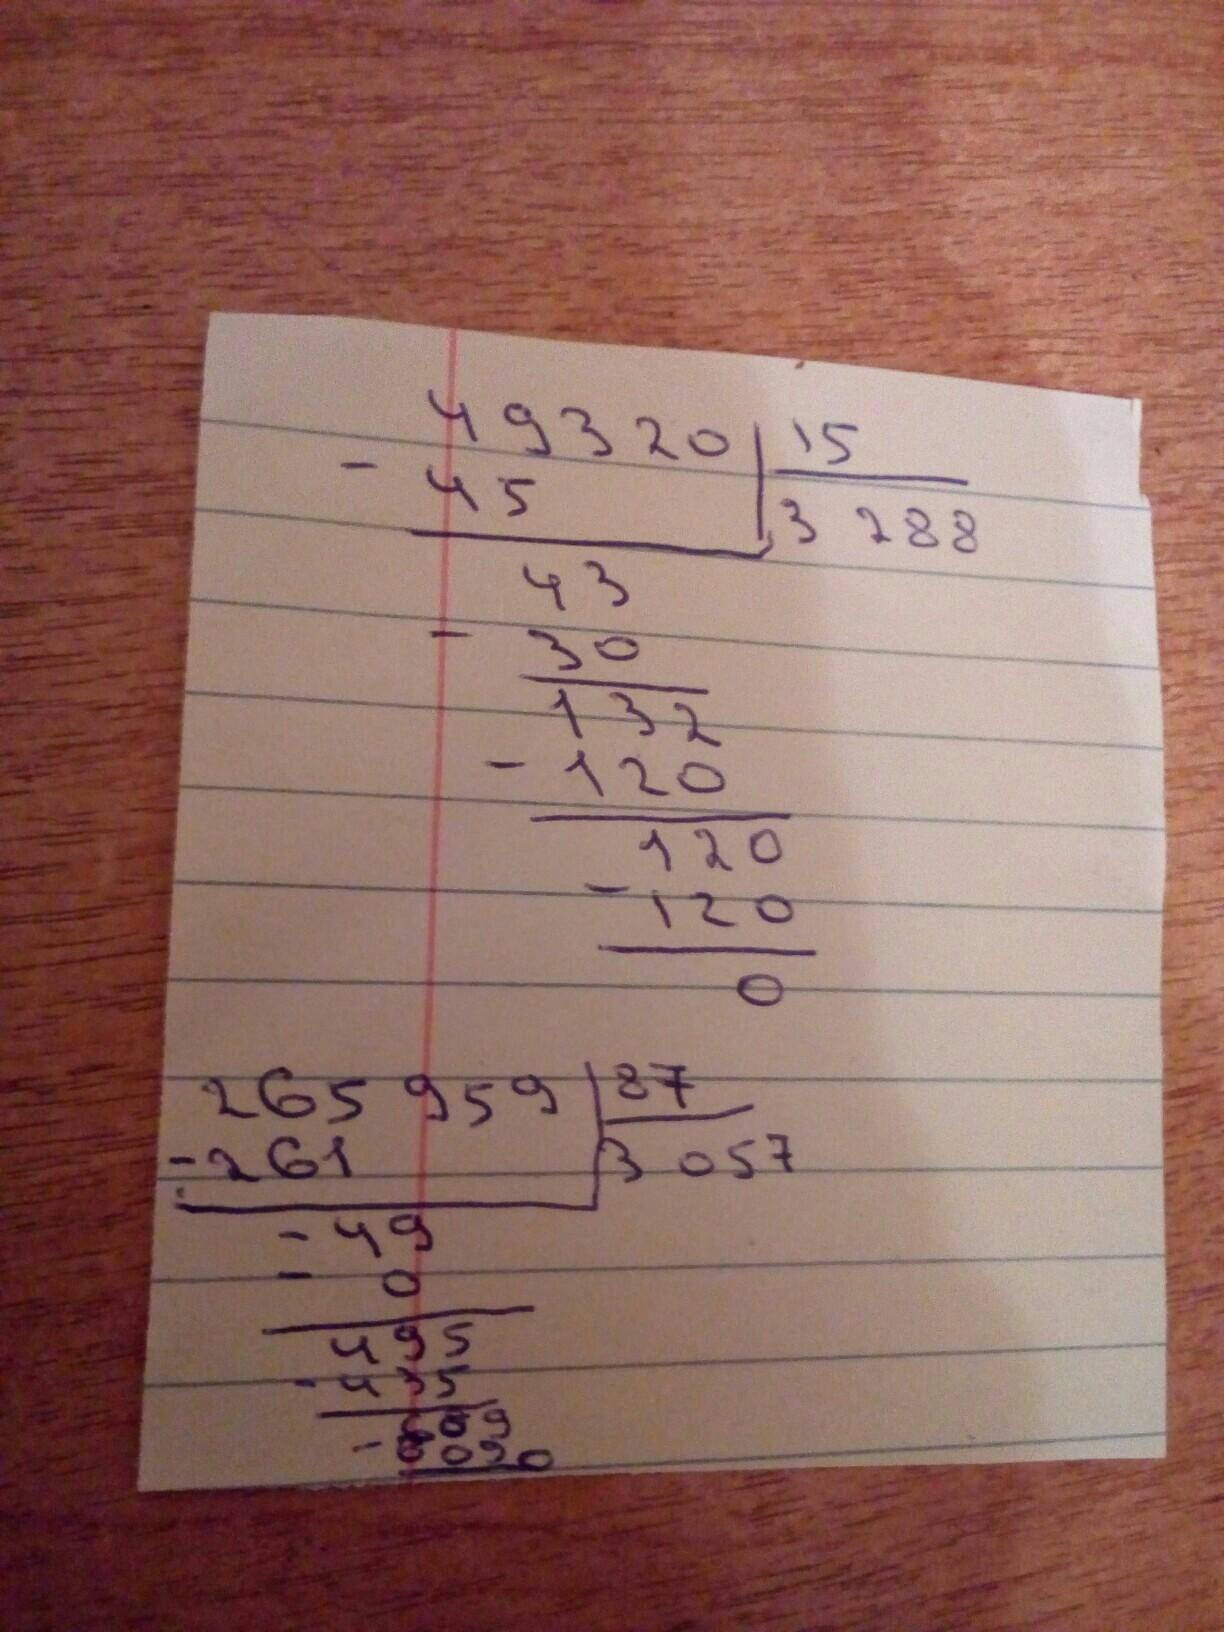 49320 15
- 45 3 288
43
- 30
132
- 120
120
- 120
0
265 959 87
- 261 3 057
- 49
- 0
495
- 435
609
- 609 0